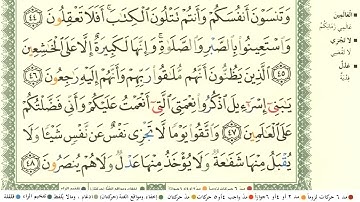 وَتَنسَوْنَ أَنفُسَكُمْ وَأَنتُمْ تَتْلُونَ ٱلْكِتَٰبَ أَفَلَا تَعْقِلُونَ ٤٤
وَٱسْتَعِينُوا۟ بِٱلصَّبْرِ وَٱلصَّلَوٰةِ وَإِنَّهَا لَكَبِيرَةٌ إِلَّا عَلَى ٱلْخَٰشِعِينَ
٤٥ ٱلَّذِينَ يَظُنُّونَ أَنَّهُم مُّلَٰقُوا۟ رَبِّهِمْ وَأَنَّهُمْ إِلَيْهِ رَٰجِعُونَ ٤٦
يَٰبَنِىٓ إِسْرَٰٓءِيلَ ٱذْكُرُوا۟ نِعْمَتِىَ ٱلَّتِىٓ أَنْعَمْتُ عَلَيْكُمْ وَأَنِّى فَضَّلْتُكُمْ
عَلَى ٱلْعَٰلَمِينَ ٤٧ وَٱتَّقُوا۟ يَوْمًا لَّا تَجْزِى نَفْسٌ عَن نَّفْسٍ شَيْـًٔا وَلَا
يُقْبَلُ مِنْهَا شَفَٰعَةٌ وَلَا يُؤْخَذُ مِنْهَا عَدْلٌ وَلَا هُمْ يُنصَرُونَ ٤٨
العالمين
عالمي زمانكم
لا تجزي
لا تقضي
عدل
فدية